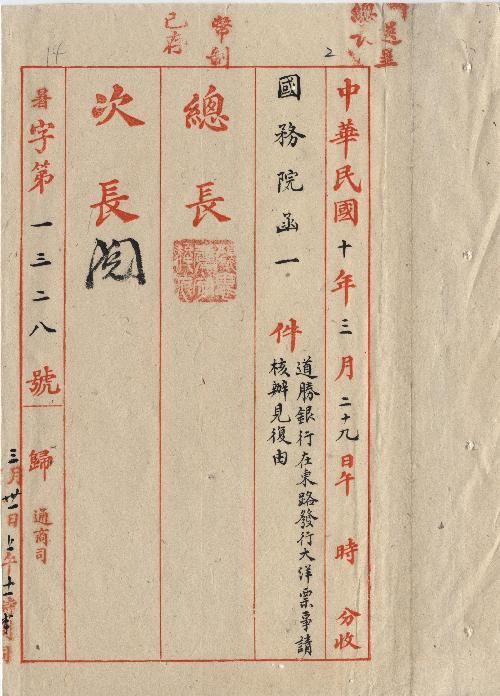 2
幣制
已存
14
中華民國十年三月二十九日午 時 分收
國務院函一 件
道勝銀行在東路發行大洋票事請
核辦見復由
總長
次長
閱
暑字第一三二八號
歸
通商司
三月卅一日上午十一時